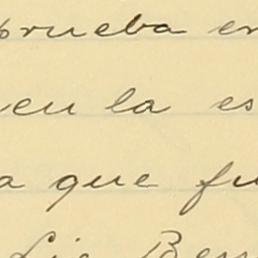 prueba en
en la es
a que fu
Lic Ben